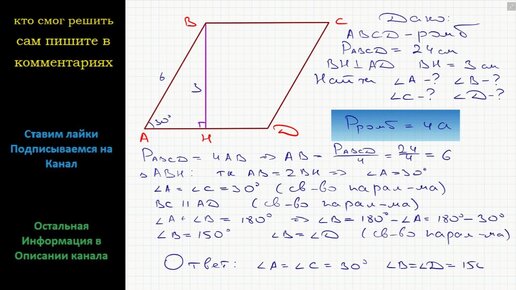 кто смог решить
сам пишите в
комментариях
Ставим лайки
Подписываемся на
Канал
Остальная
Информация в
Описании канала
B
C
6
3
30°
A
H
D
Дано:
ABCD - ромб
P_ABCD = 24 см
BH ⊥ AD BH = 3 см
Найти ∠A - ? ∠B - ?
∠C - ? ∠D - ?
P_ромб = 4a
P_ABCD = 4AB ⇒ AB = P_ABCD/4 = 24/4 = 6
△ABH: тк AB = 2BH ⇒ ∠A = 30°
∠A = ∠C = 30° (св-во парал-ма)
BC || AD (св-во парал-ма)
∠A + ∠B = 180° ⇒ ∠B = 180° - ∠A = 180° - 30°
∠B = 150° ∠B = ∠D (св-во парал-ма)
Ответ: ∠A = ∠C = 30° ∠B = ∠D = 150